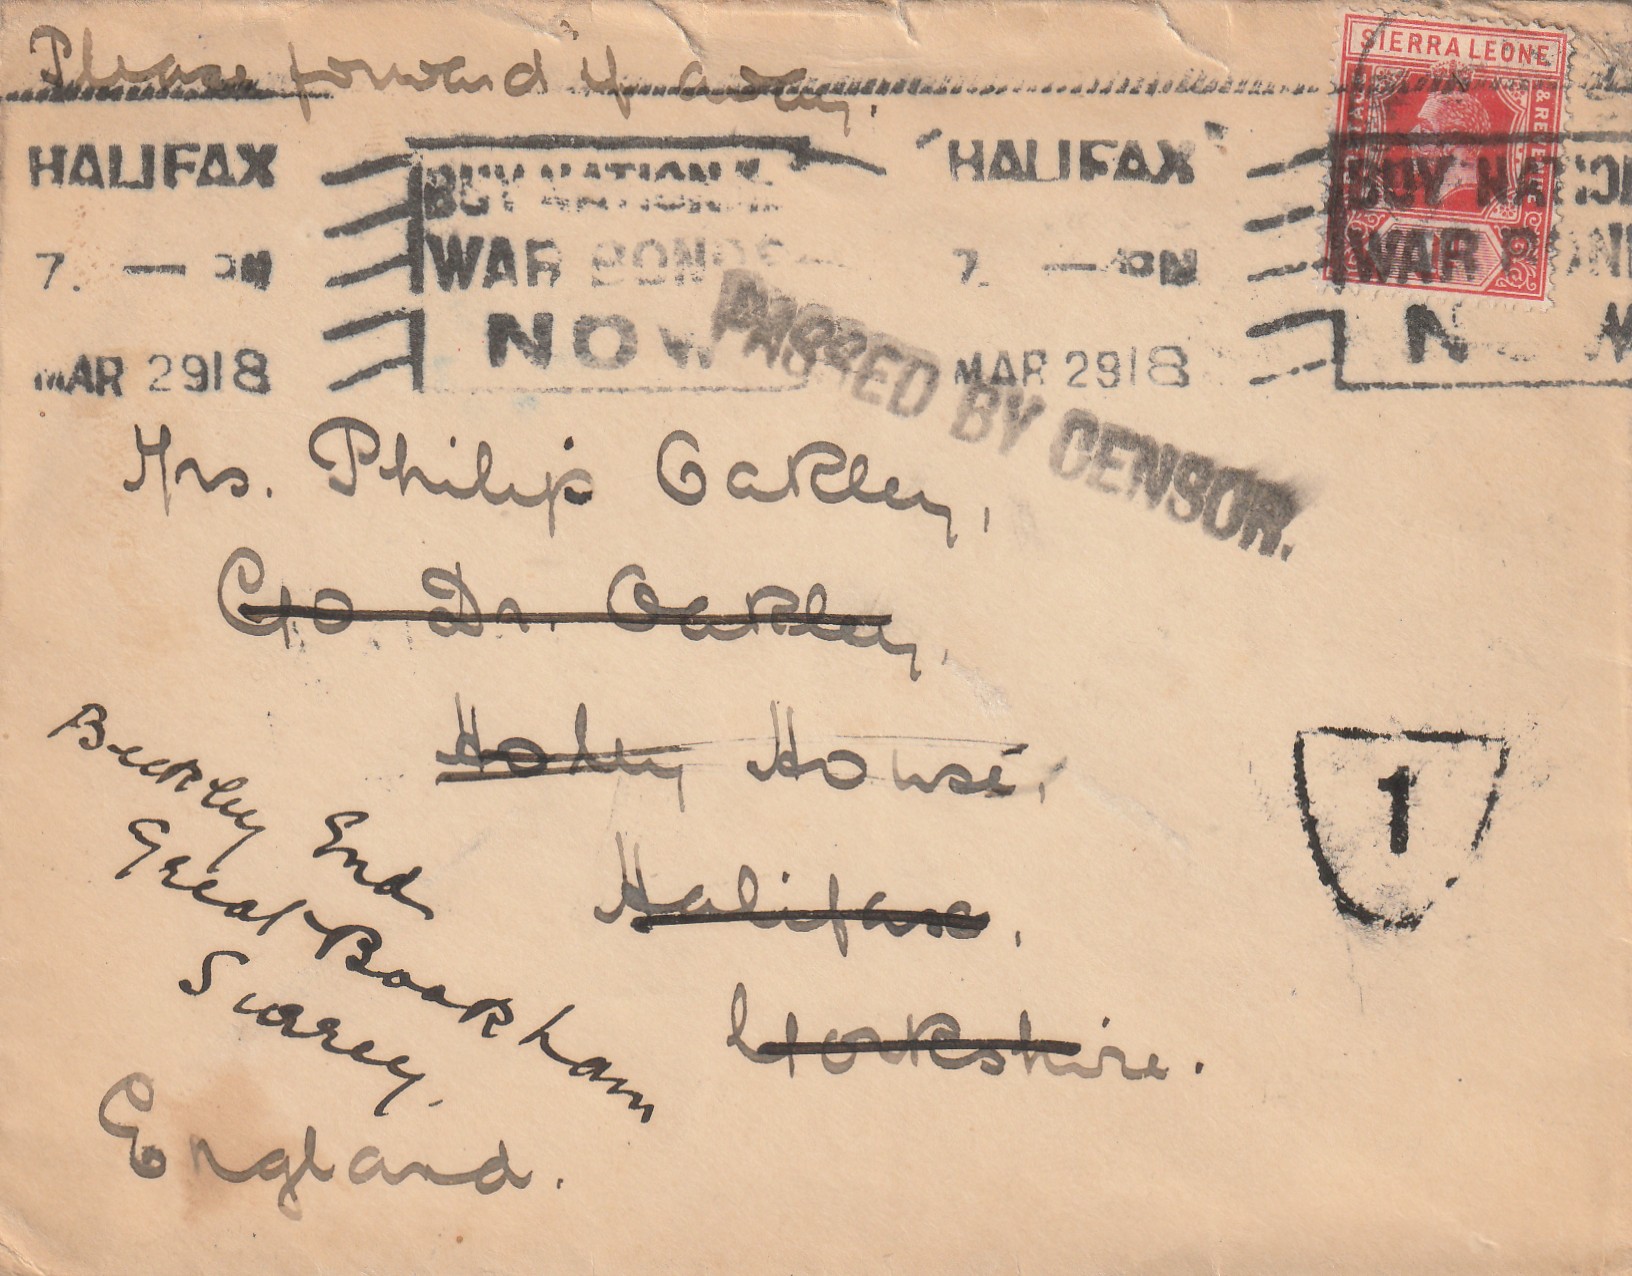 Please forward if away.
SIERRA LEONE
& REVENUE
HALIFAX
7. — PM
MAR 29 18
BUY NATIONAL
WAR BONDS
NOW
HALIFAX
7. — PM
MAR 29 18
BUY NATIO
WAR BOND
NOW
PASSED BY CENSOR.
Mrs. Philip Oakley,
C/o Dr. Oakley,
Holly House,
Halifax,
Yorkshire.
England.
End
Great Bookham
Surrey.
1